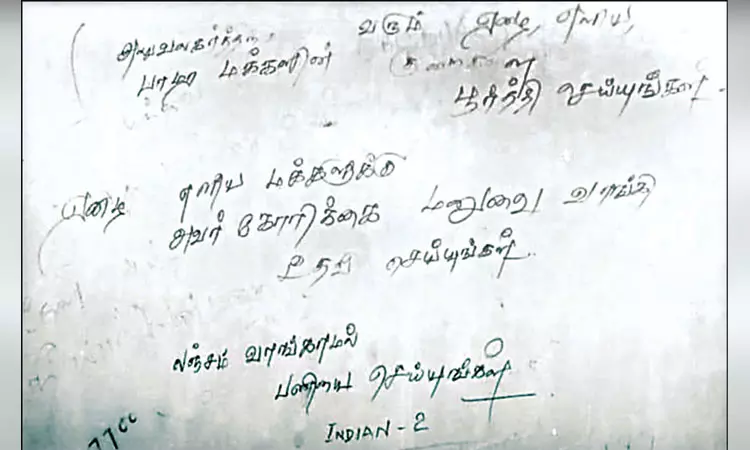 அலுவலகத்திற்கு வரும் ஏழை, எளிய,
பாமர மக்களின் குறைகளை
பூர்த்தி செய்யுங்கள்.
ஏழை எளிய மக்களுக்கு
அவர் கோரிக்கை மனுவை வாங்கி
உதவி செய்யுங்கள்.
லஞ்சம் வாங்காமல்
பணியை செய்யுங்கள்
INDIAN - 2